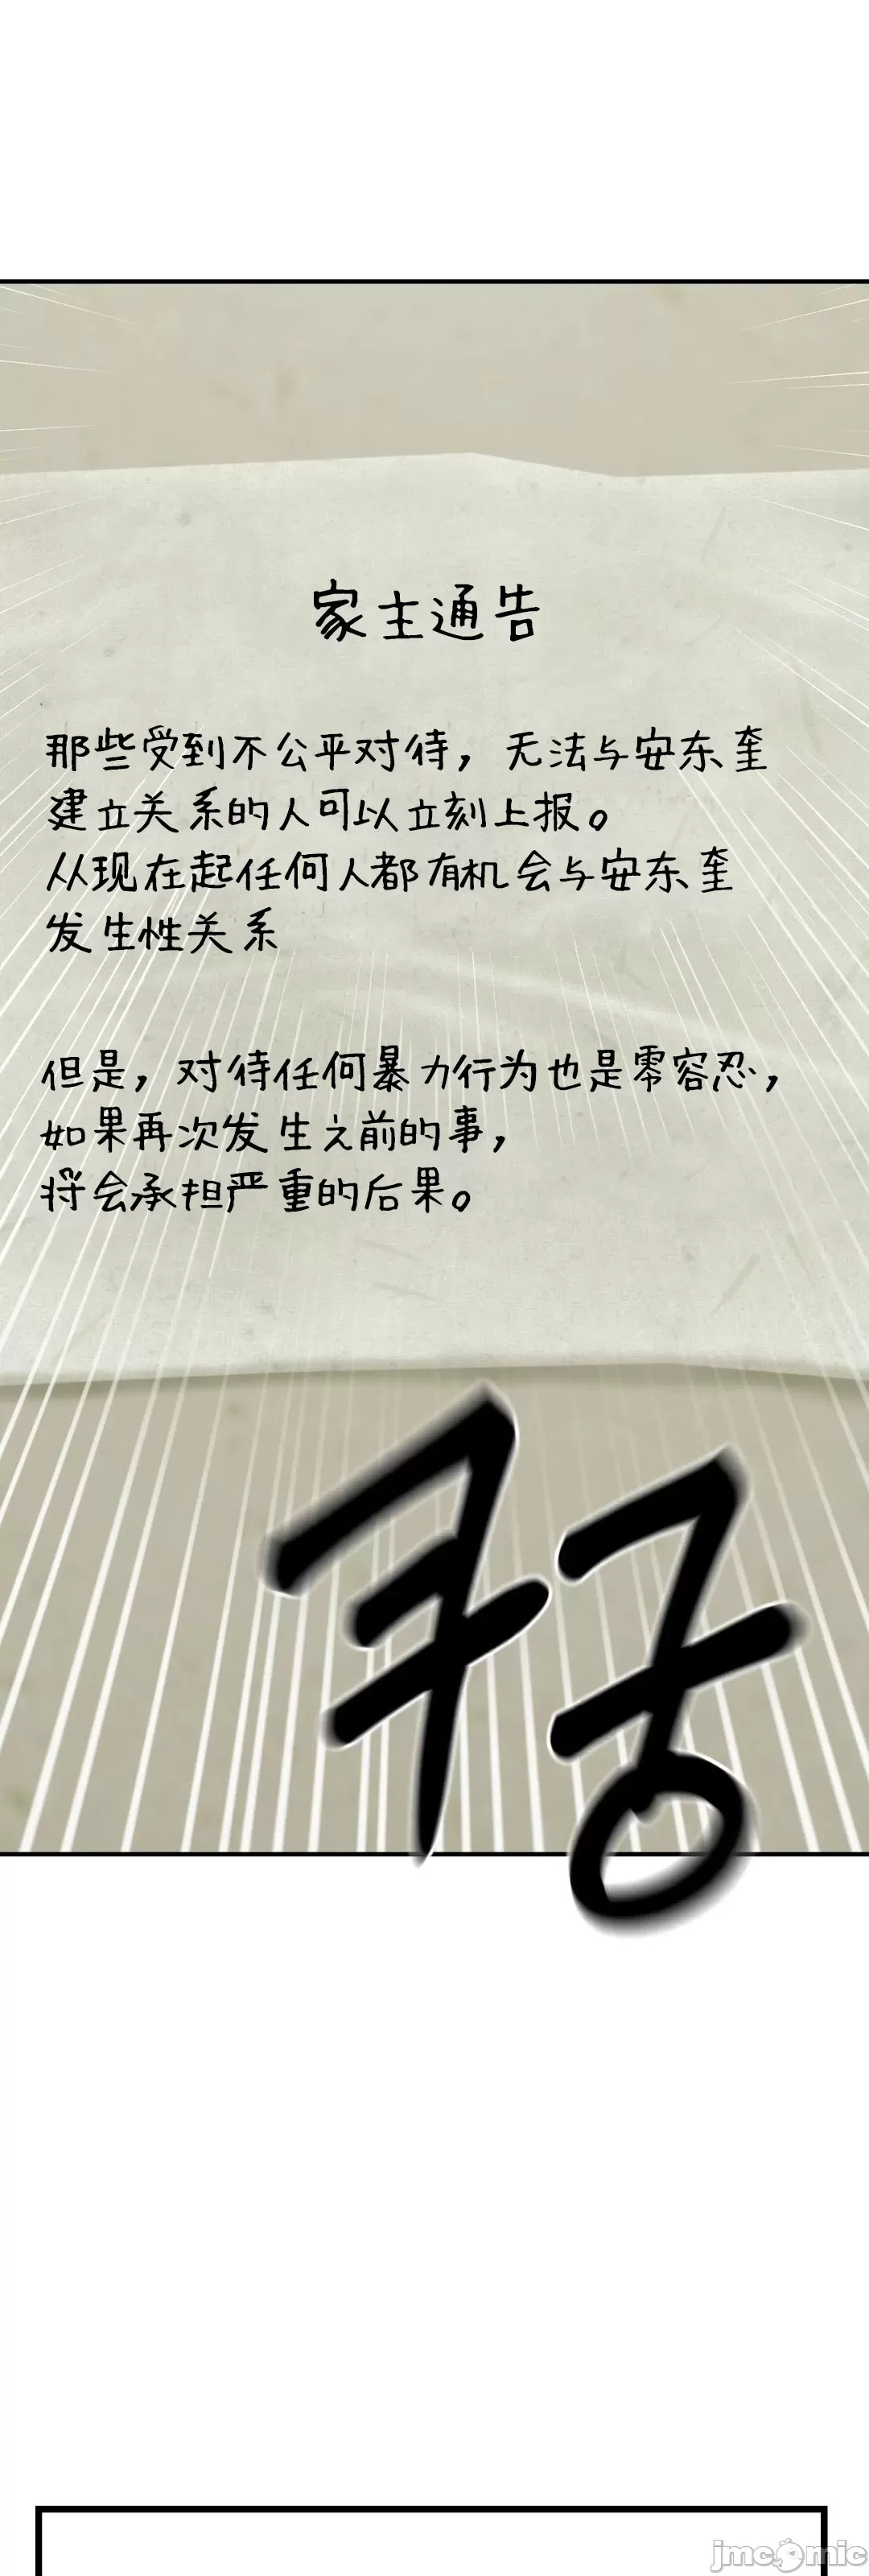 家主通告
那些受到不公平对待，无法与安东奎
建立关系的人可以立刻上报。
从现在起任何人都有机会与安东奎
发生性关系
但是，对待任何暴力行为也是零容忍，
如果再次发生之前的事，
将会承担严重的后果。
쿠궁
jmcomic